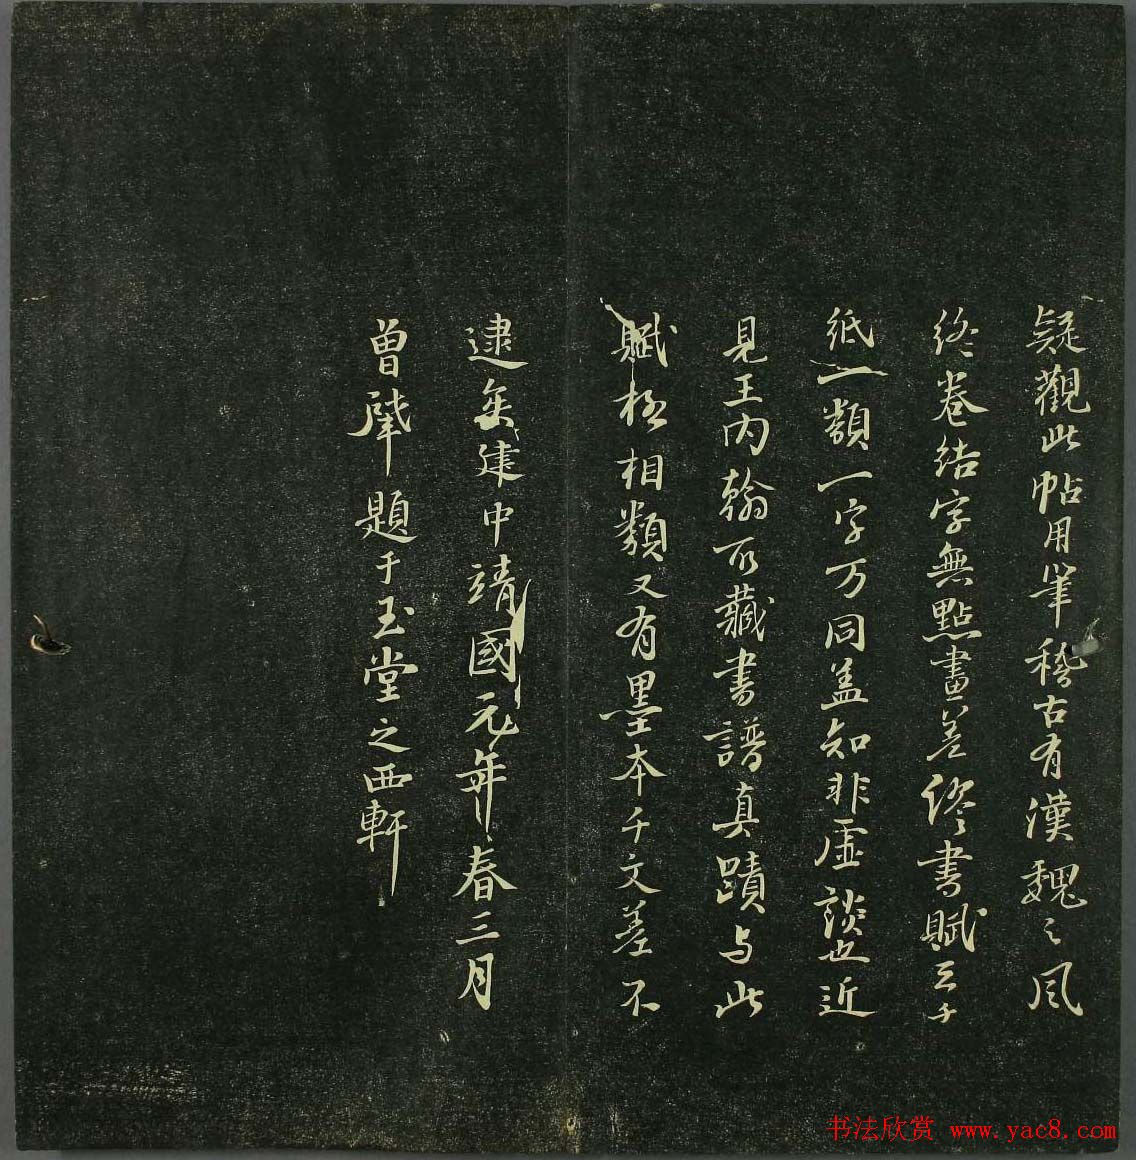 疑觀此帖用筆稽古有漢魏之風
終卷結字無點畫差繆書賦云千
紙一類一字万同盖知非虛談也近
見王内翰所藏書譜真蹟与此
賦極相類又有墨本千文差不
逮矣建中靖國元年春三月
曾肇題于玉堂之西軒
书法欣赏 www.yac8.com